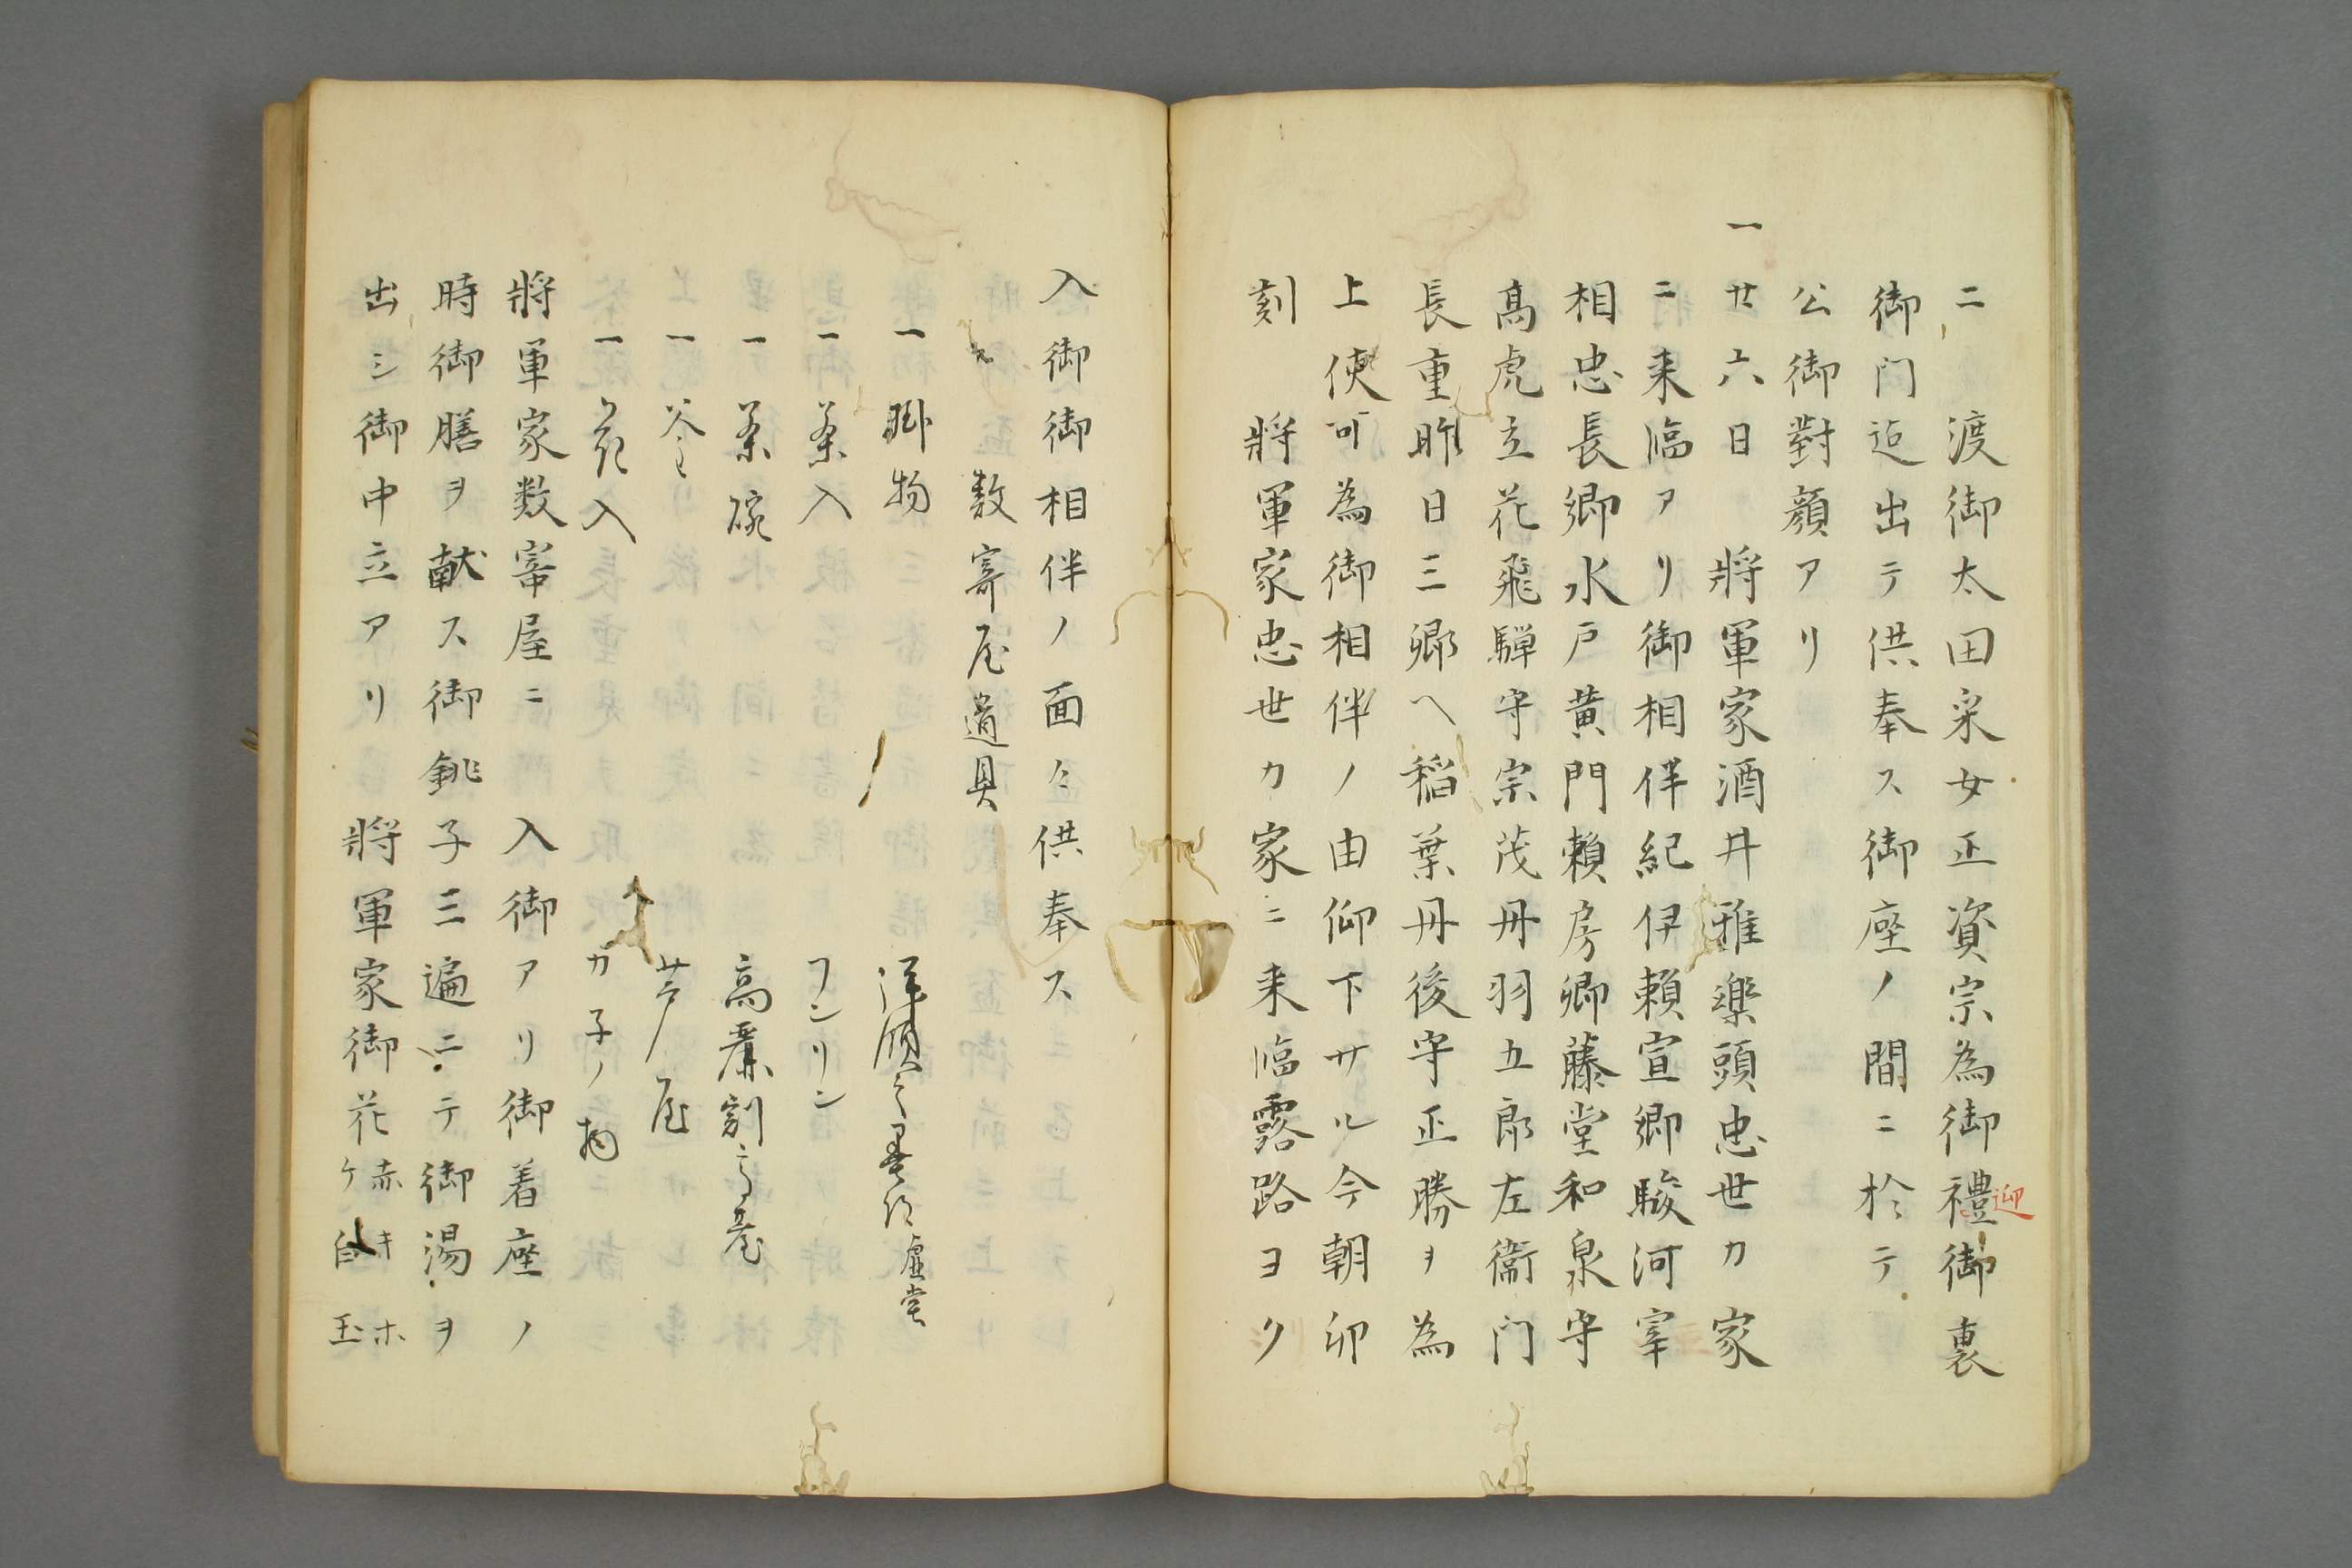 ニ 渡御太田采女正資宗為御禮御裏
迎
御门迠出テ供奉ス御座ノ間ニ於テ
公御對顔アリ
一廿六日 將軍家酒井雅樂頭忠世カ家
ニ来臨アリ御相伴紀伊頼宣卿駿河宰
相忠長卿水戸黄門頼房卿藤堂和泉守
髙虎立花飛騨守宗茂丹羽五郎左衞门
長重昨日三卿ヘ稲葉丹後守正勝ヲ為
上使可為御相伴ノ由仰下サル今朝卯
刻 將軍家忠世カ家ニ来臨露路ヨク
入御御相伴ノ面々供奉ス
数寄屋道具
一掛物 虚堂
一茶入 フンリン
一茶碗 高麗割高臺
一釜 芦屋
一花入 カ子ノ物
將軍家数寄屋ニ 入御アリ御着座ノ
時御膳ヲ献ス御銚子三遍ニテ御湯ヲ
出シ御中立アリ 將軍家御花ケ赤キホ
白玉